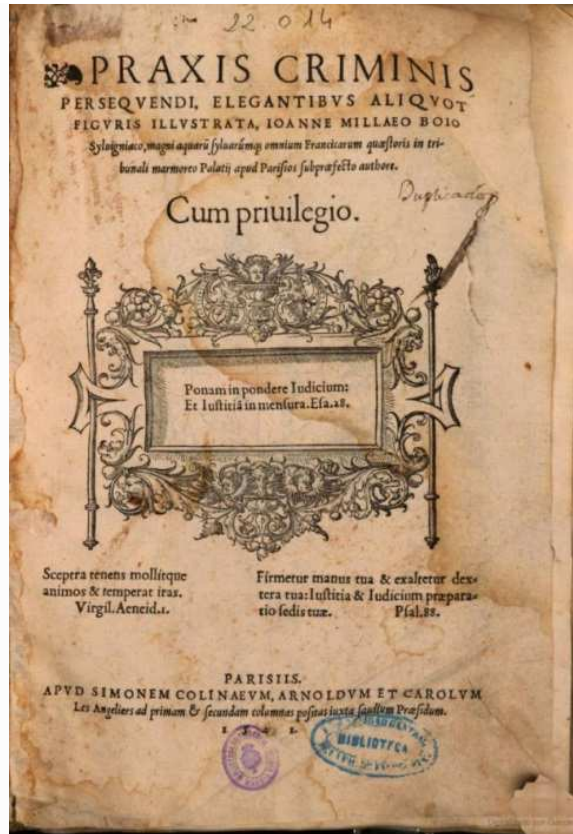 22.014
PRAXIS CRIMINIS
PERSEQVENDI, ELEGANTIBVS ALIQVOT
FIGVRIS ILLVSTRATA, IOANNE MILLAEO BOIO
Syluigniaco, magni aquarū syluarūmq; omnium Francicarum quæstoris in tri-
bunali marmoreo Palatij apud Parisios subpræfecto authore.
Duplicado
Cum priuilegio.
Ponam in pondere Iudicium:
Et Iustitiā in mensura. Esa.28.
Sceptra tenens mollitque
animos & temperat iras.
Virgil. Aeneid.1.
Firmetur manus tua & exaltetur dex-
tera tua: Iustitia & Iudicium præpara-
tio sedis tuæ. Psal.88.
PARISIIS.
APVD SIMONEM COLINAEVM, ARNOLDVM ET CAROLVM
Les Angeliers ad primam & secundam columnas positas iuxta sacellum Præsidum.
1541.
BIBLIOTECA